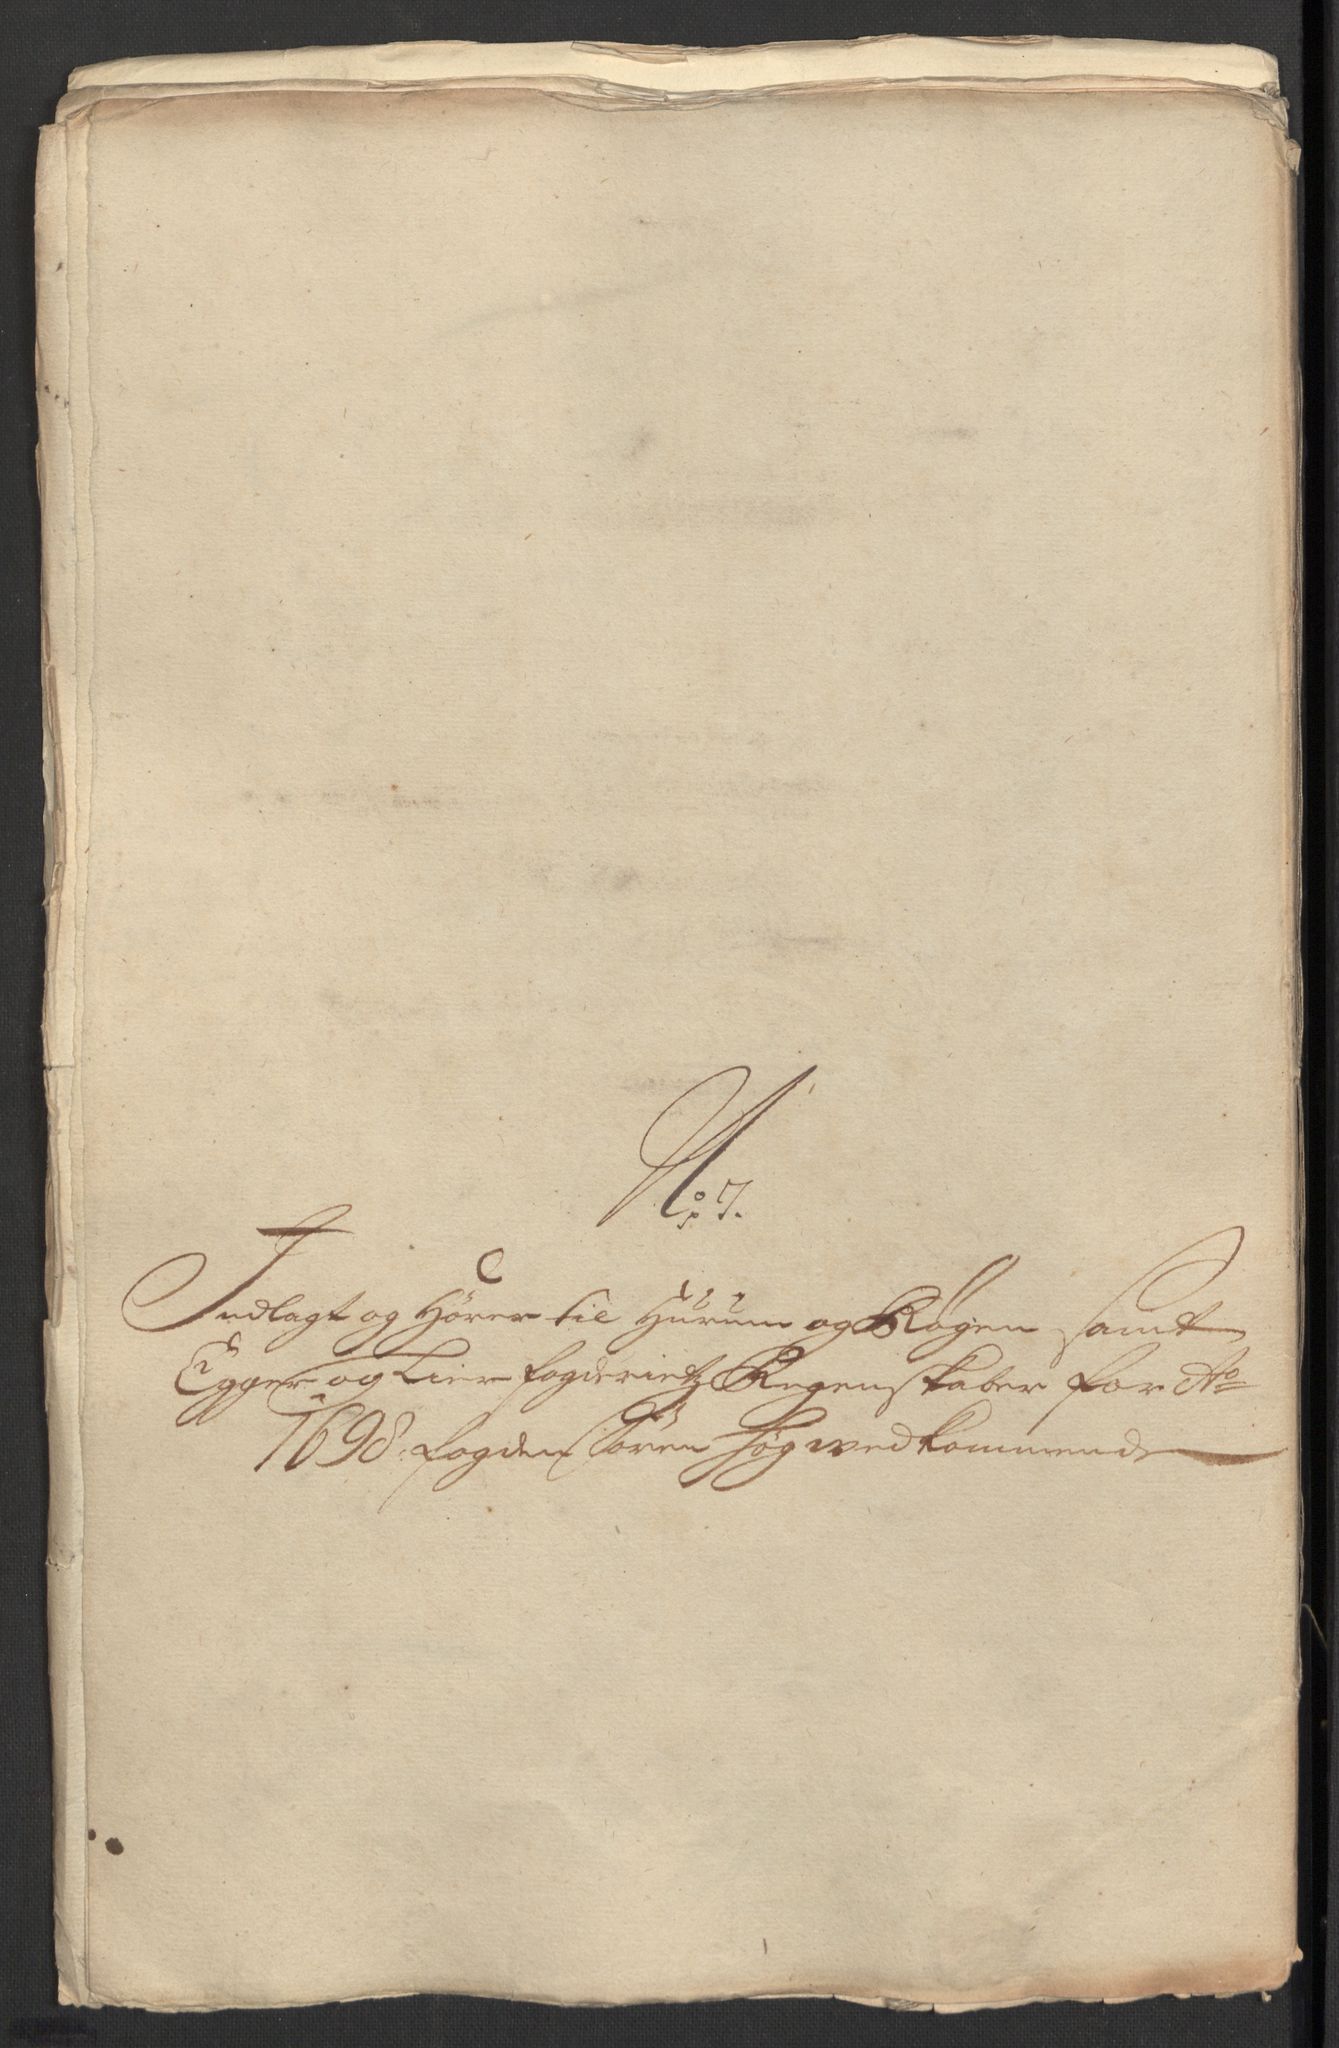 No: 7.
Indlagt og Hører til Hurum og Røgen samt
Egger og Lier fogderietz Regenskaber for Ao
1698. fogden Søren Høg vedkommende